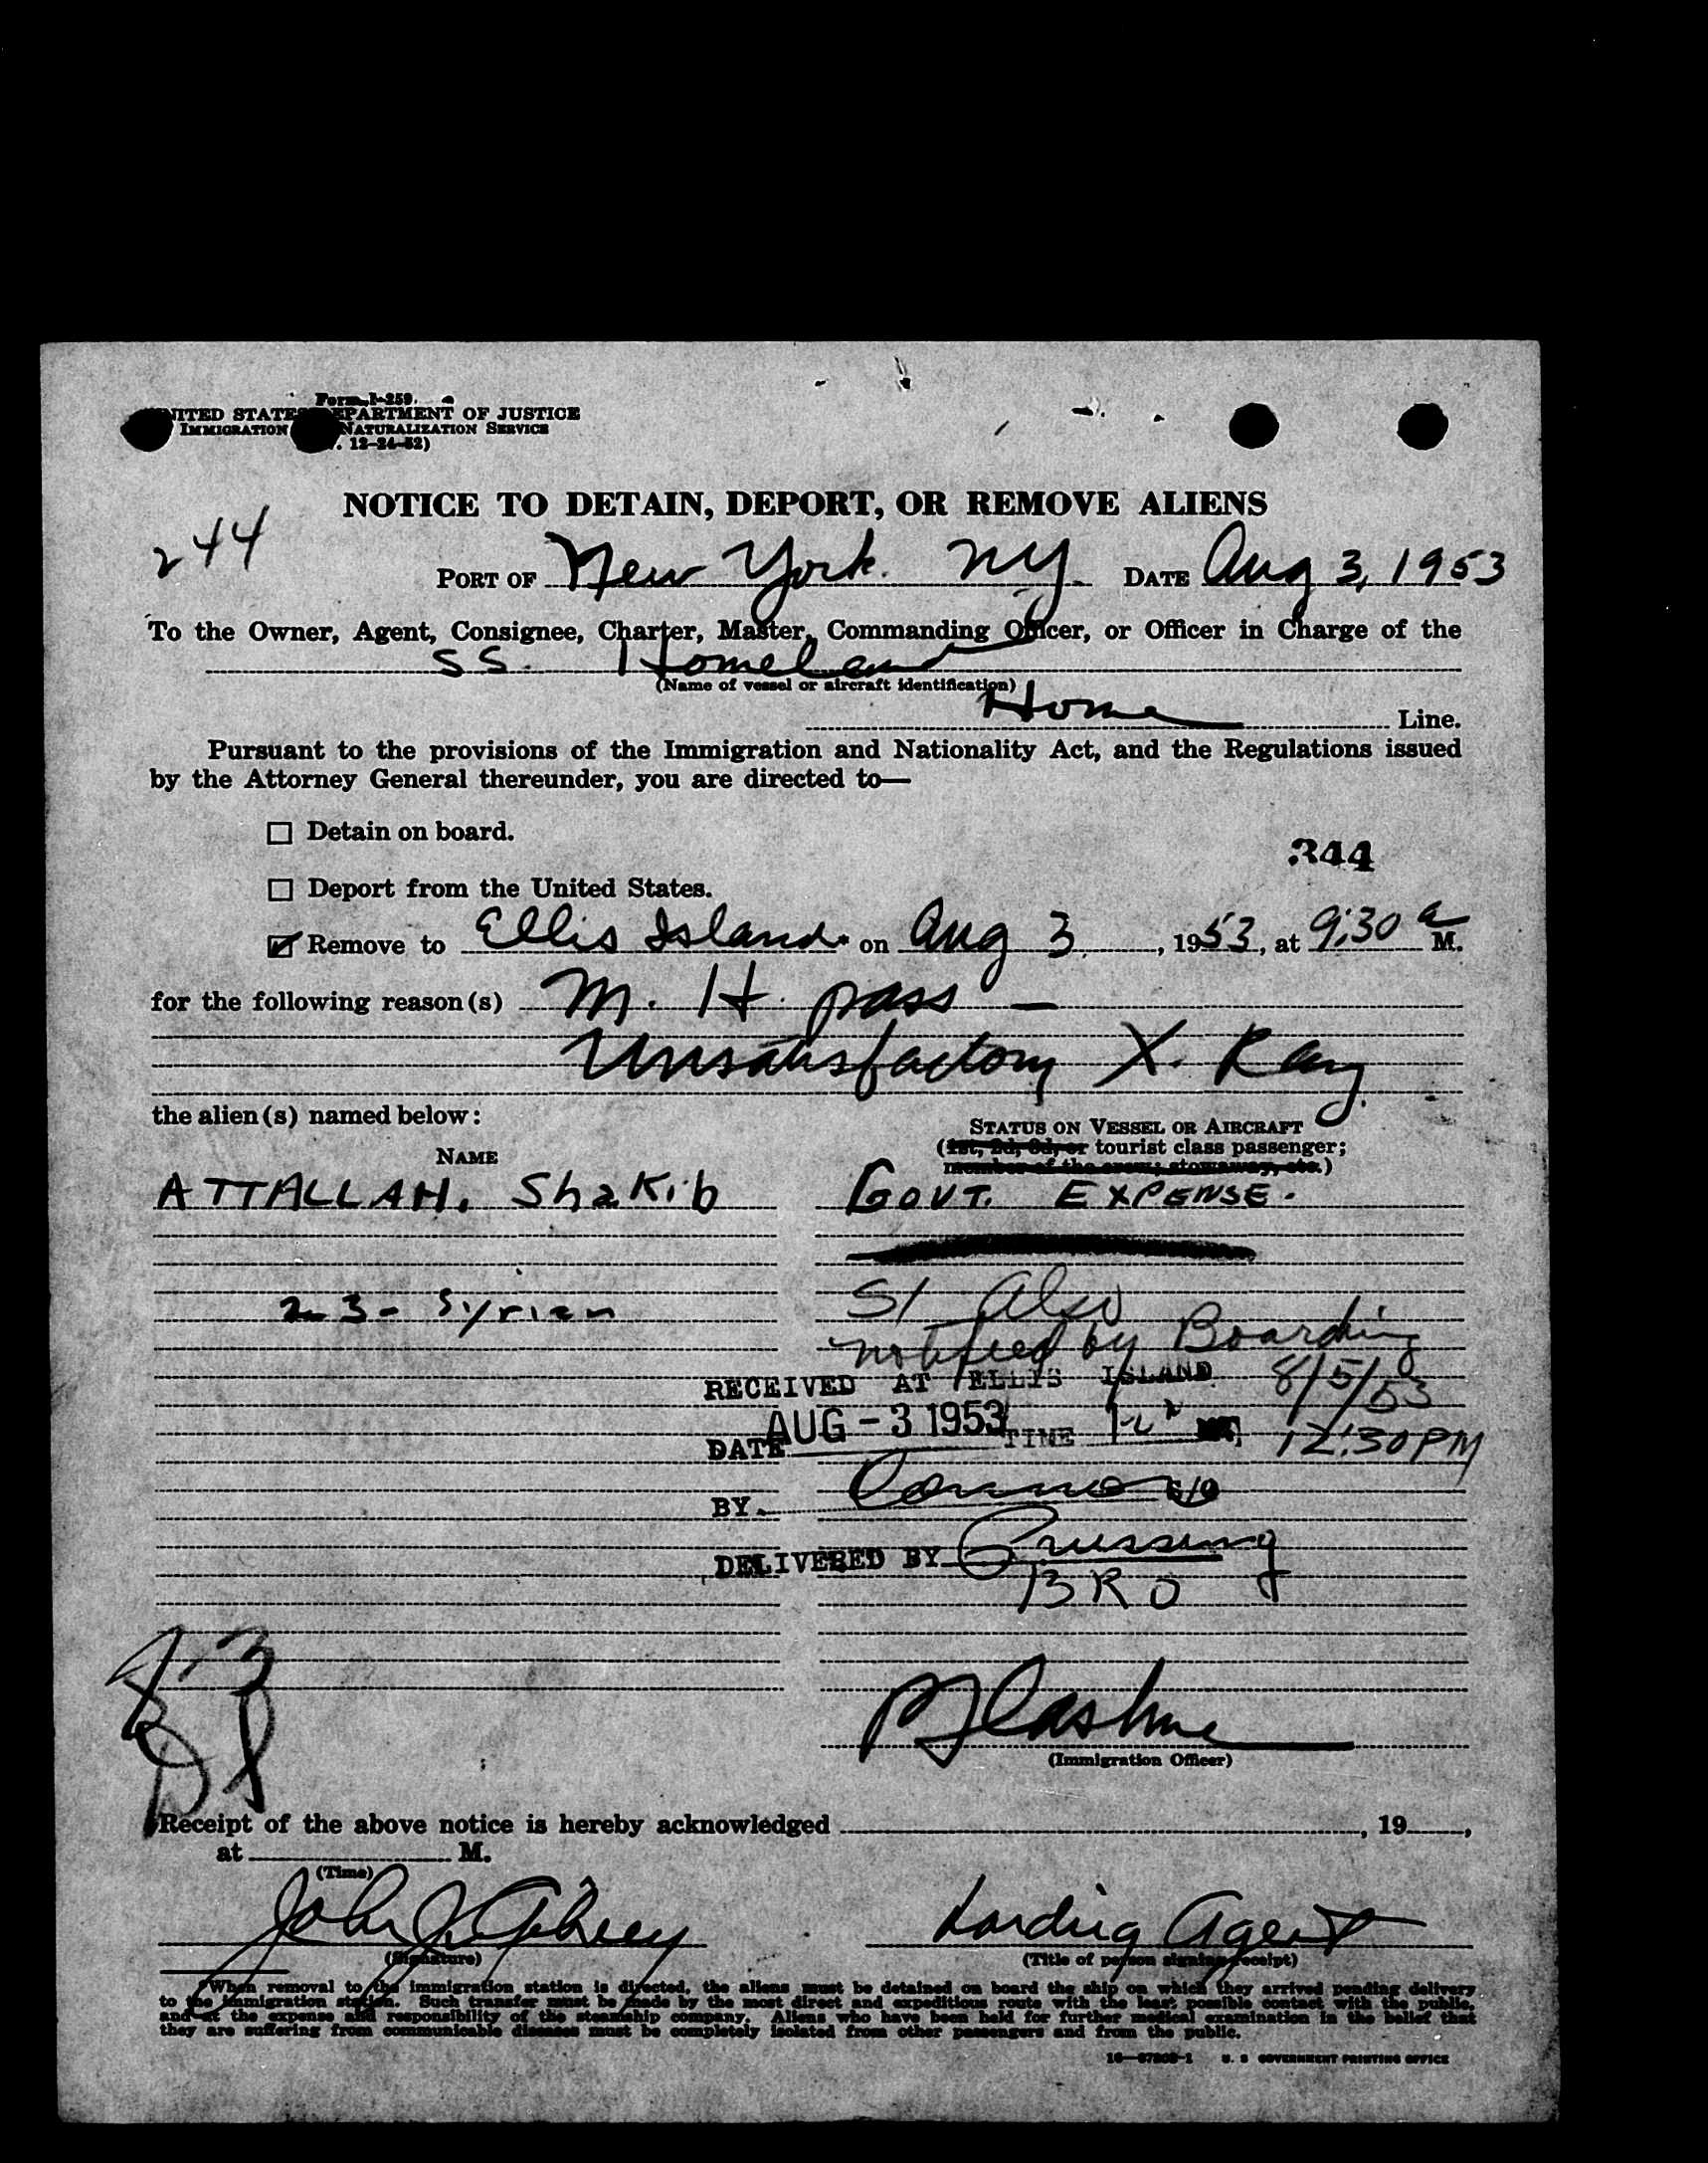 Form I-259
UNITED STATES DEPARTMENT OF JUSTICE
IMMIGRATION NATURALIZATION SERVICE
12-24-52)
NOTICE TO DETAIN, DEPORT, OR REMOVE ALIENS
244
PORT OF New York. NY. DATE Aug 3, 1953
To the Owner, Agent, Consignee, Charter, Master, Commanding Officer, or Officer in Charge of the
SS. Homeland
(Name of vessel or aircraft identification)
Home Line.
Pursuant to the provisions of the Immigration and Nationality Act, and the Regulations issued
by the Attorney General thereunder, you are directed to—
Detain on board.
344
Deport from the United States.
Remove to Ellis Island on Aug 3, 1953, at 9:30 a M.
for the following reason(s) M. H. pass —
Unsatisfactory X. Ray.
the alien(s) named below:
STATUS ON VESSEL OR AIRCRAFT
(1st, 2d, 3d, or tourist class passenger;
member of the crew; stowaway, etc.)
NAME
ATTALLAH, Shakib GOVT. EXPENSE.
23- Syrian
S/ Also
notified by Boarding
8/5/53
12:30 PM
RECEIVED AT ELLIS ISLAND
DATE AUG - 3 1953 TIME
BY
DELIVERED BY
BRO
(Immigration Officer)
Receipt of the above notice is hereby acknowledged , 19 ,
at M.
(Time)
John J. Landing Agent
(Signature) (Title of person signing receipt)
When removal to the immigration station is directed, the aliens must be detained on board the ship on which they arrived pending delivery
to the immigration station. Such transfer must be made by the most direct and expeditious route with the least possible contact with the public,
and at the expense and responsibility of the steamship company. Aliens who have been held for further medical examination in the belief that
they are suffering from communicable diseases must be completely isolated from other passengers and from the public.
U. S. GOVERNMENT PRINTING OFFICE